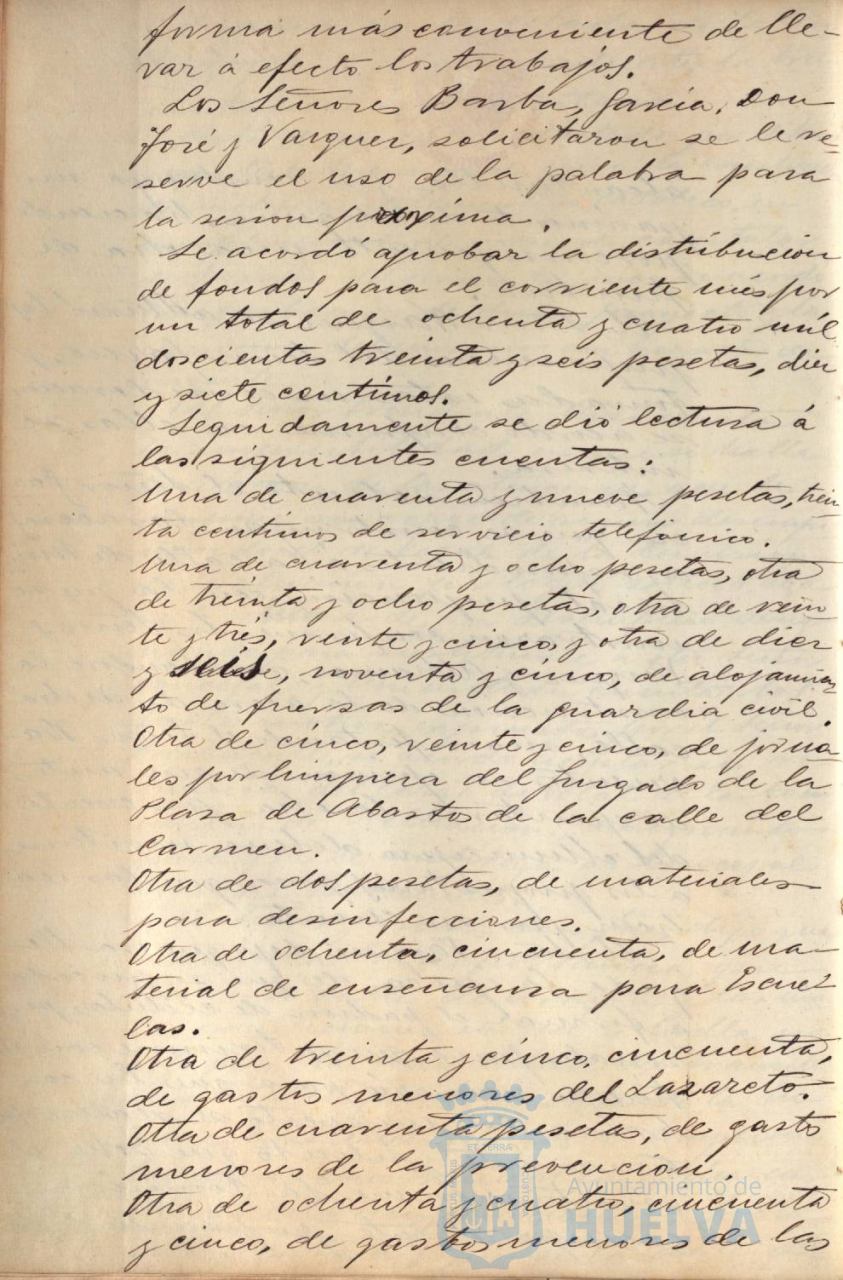 forma más conveniente de lle-
var á efecto los trabajos.
Los Señores Barba, García, Don
José y Vazquez, solicitaron se le re-
serve el uso de la palabra para
la sesion proxima.
Se acordó aprobar la distribucion
de fondos para el corriente més por
un total de ochenta y cuatro mil
doscientas treinta y seis pesetas, diez
y siete centimos.
Seguidamente se dió lectura á
las siguientes cuentas:
Una de cuarenta y nueve pesetas, trein-
ta centimos de servicio telefónico.
Una de cuarenta y ocho pesetas, otra
de treinta y ocho pesetas, otra de vein-
te y trés, veinte y cinco, y otra de diez
y seis, noventa y cinco, de alojamien-
to de fuersas de la guardia civil.
Otra de cinco, veinte y cinco, de jorna-
les por limpieza del Jusgado de la
Plasa de Abastos de la calle del
Carmen.
Otra de dos pesetas, de materiales
para desinfecciones.
Otra de ochenta, cincuenta, de ma-
terial de enseñansa para Escue-
las.
Otra de treinta y cinco, cincuenta,
de gastos menores del Lazareto.
Otra de cuarenta pesetas, de gastos
menores de la prevencion.
Otra de ochenta y cuatro, cincuenta
y cinco, de gastos menores de las
Ayuntamiento de
HUELVA